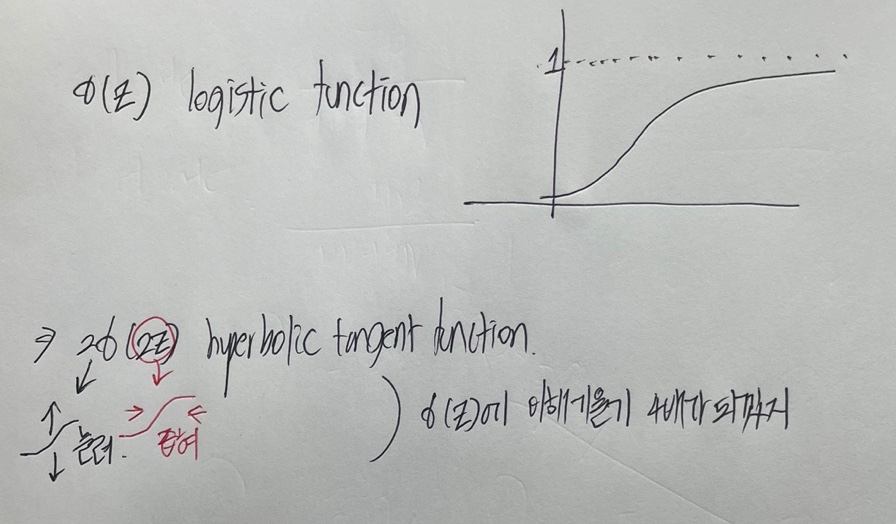 φ(z) logistic function
1
⇒ 2φ(2z) hyperbolic tangent function.
눌려. 좁혀
φ(z)에 비해 기울기 4배가 되겠지